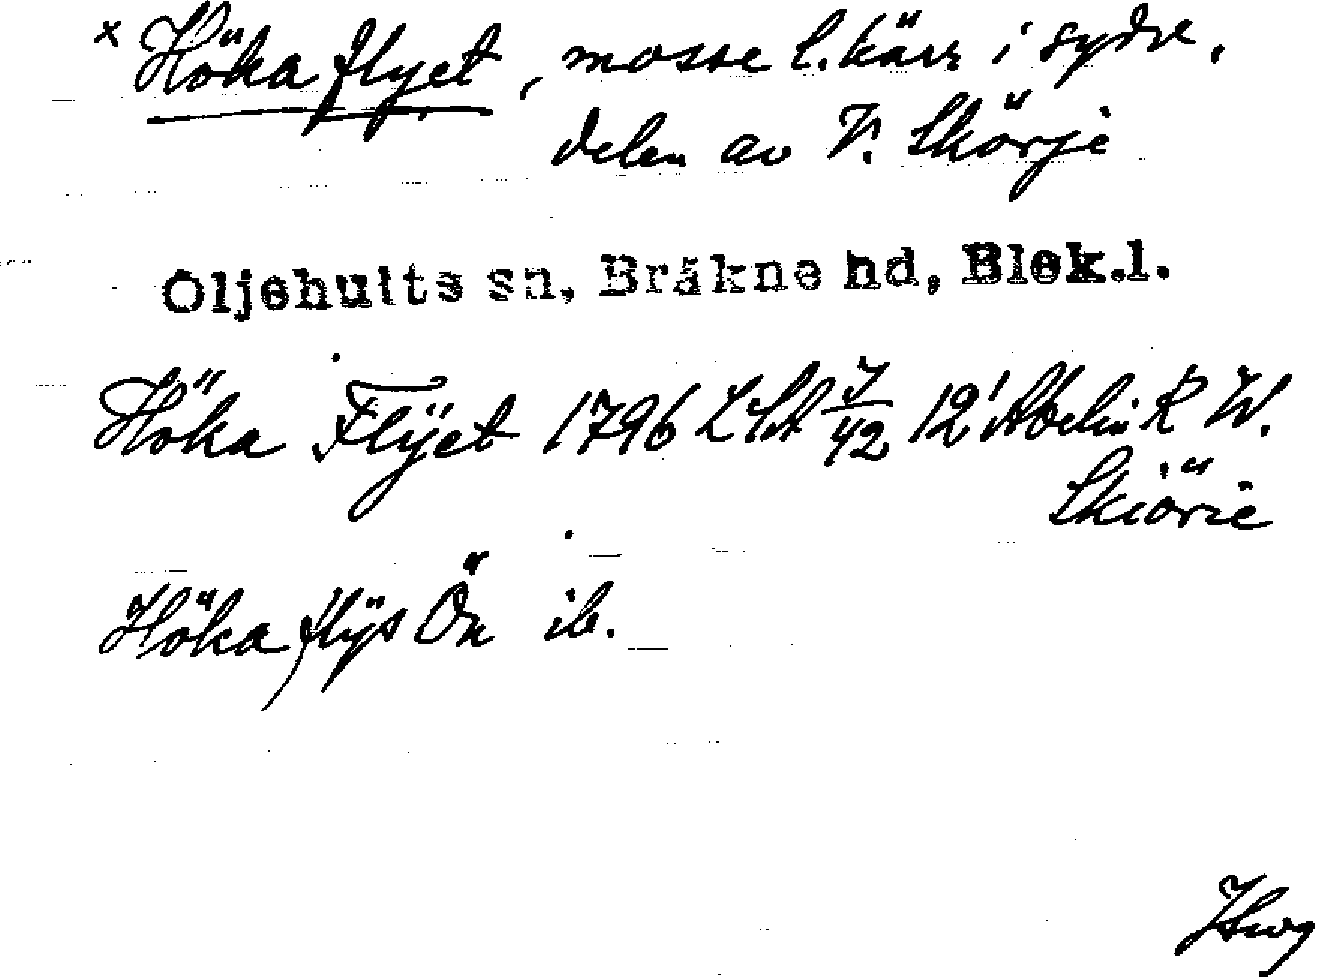 x Höka flyet, mosse l. kärr i sydv.
delen av V. Skörje
Öljehults sn, Bräkne hd, Blek.l.
Höka Flÿet 1796 LSA J/42 12' Abelin R W.
Skiörie
Höka flÿs Ön ib.